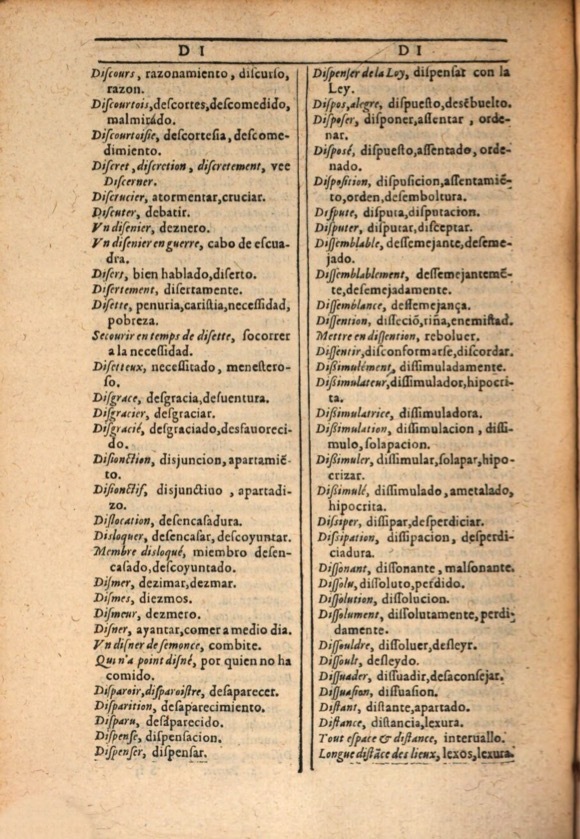 D I
Diſcours, razonamiento, diſcurſo,
razon.
Diſcourtois,deſcortes,deſcomedido,
malmirado.
Diſcourtoiſie, deſcorteſia, deſcome-
dimiento.
Diſcret, diſcretion, diſcretement, vee
Diſcerner.
Diſcrucier, atormentar,cruciar.
Diſcuter, debatir.
Vn diſenier, deznero.
Vn diſenier en guerre, cabo de eſcua-
dra.
Diſert, bien hablado,diſerto.
Diſertement, diſertamente.
Diſette, penuria,cariſtia,neceſſidad,
pobreza.
Secourir en temps de diſette, ſocorrer
a la neceſſidad.
Diſetteux, neceſſitado, meneſtero-
ſo.
Diſgrace, deſgracia,deſuentura.
Diſgracier, deſgraciar.
Diſgracié, deſgraciado,desfauoreci-
do.
Diſionction, disjuncion, apartamiē-
to.
Diſionctif, disjunctiuo , apartadi-
zo.
Diſlocation, deſencaſadura.
Diſloquer, deſencaſar,deſcoyuntar.
Membre diſloqué, miembro deſen-
caſado,deſcoyuntado.
Diſmer, dezimar,dezmar.
Diſmes, diezmos.
Diſmeur, dezmero.
Diſner, ayantar,comer a medio dia.
Vn diſner de ſemonce, combite.
Qui n'a point diſné, por quien no ha
comido.
Diſparoir,diſparoiſtre, deſaparecer.
Diſparition, deſaparecimiento.
Diſparu, deſaparecido.
Diſpenſe, diſpenſacion.
Diſpenſer, diſpenſar.
D I
Diſpenſer de la Loy, diſpenſar con la
Ley.
Diſpos,alegre, diſpueſto,deſēbuelto.
Diſpoſer, diſponer,aſſentar , orde-
nar.
Diſpoſé, diſpueſto,aſſentado, orde-
nado.
Diſpoſition, diſpuſicion,aſſentamiē-
to,orden,deſemboltura.
Diſpute, diſputa,diſputacion.
Diſputer, diſputar,diſceptar.
Diſſemblable, deſſemejante,deſeme-
jado.
Diſſemblablement, deſſemejantemē-
te,deſemejadamente.
Diſſemblance, deſſemejança.
Diſſention, diſſeciō,riña,enemiſtad.
Mettre en diſſention, reboluer.
Diſſentir,disconformarſe,diſcordar.
Dißimulément, diſſimuladamente.
Dißimulateur,diſſimulador,hipocri-
ta.
Dißimulatrice, diſſimuladora.
Dißimulation, diſſimulacion , diſſi-
mulo,ſolapacion.
Dißimuler, diſſimular,ſolapar,hipo-
crizar.
Dißimulé, diſſimulado, ametalado,
hipocrita.
Diſſiper, diſſipar,deſperdiciar.
Diſſipation, diſſipacion, deſperdi-
ciadura.
Diſſonant, diſſonante, malſonante.
Diſſolu,diſſoluto,perdido.
Diſſolution, diſſolucion.
Diſſolument, diſſolutamente,perdi-
damente.
Diſſouldre, diſſoluer,desleyr.
Diſſoult, desleydo.
Diſſuader, diſſuadir,deſaconſejar.
Diſſuaſion, diſſuaſion.
Diſtant, diſtante,apartado.
Diſtance, diſtancia,lexura.
Tout eſpace & diſtance, interuallo.
Longue diſtāce des lieux, lexos,lexura.